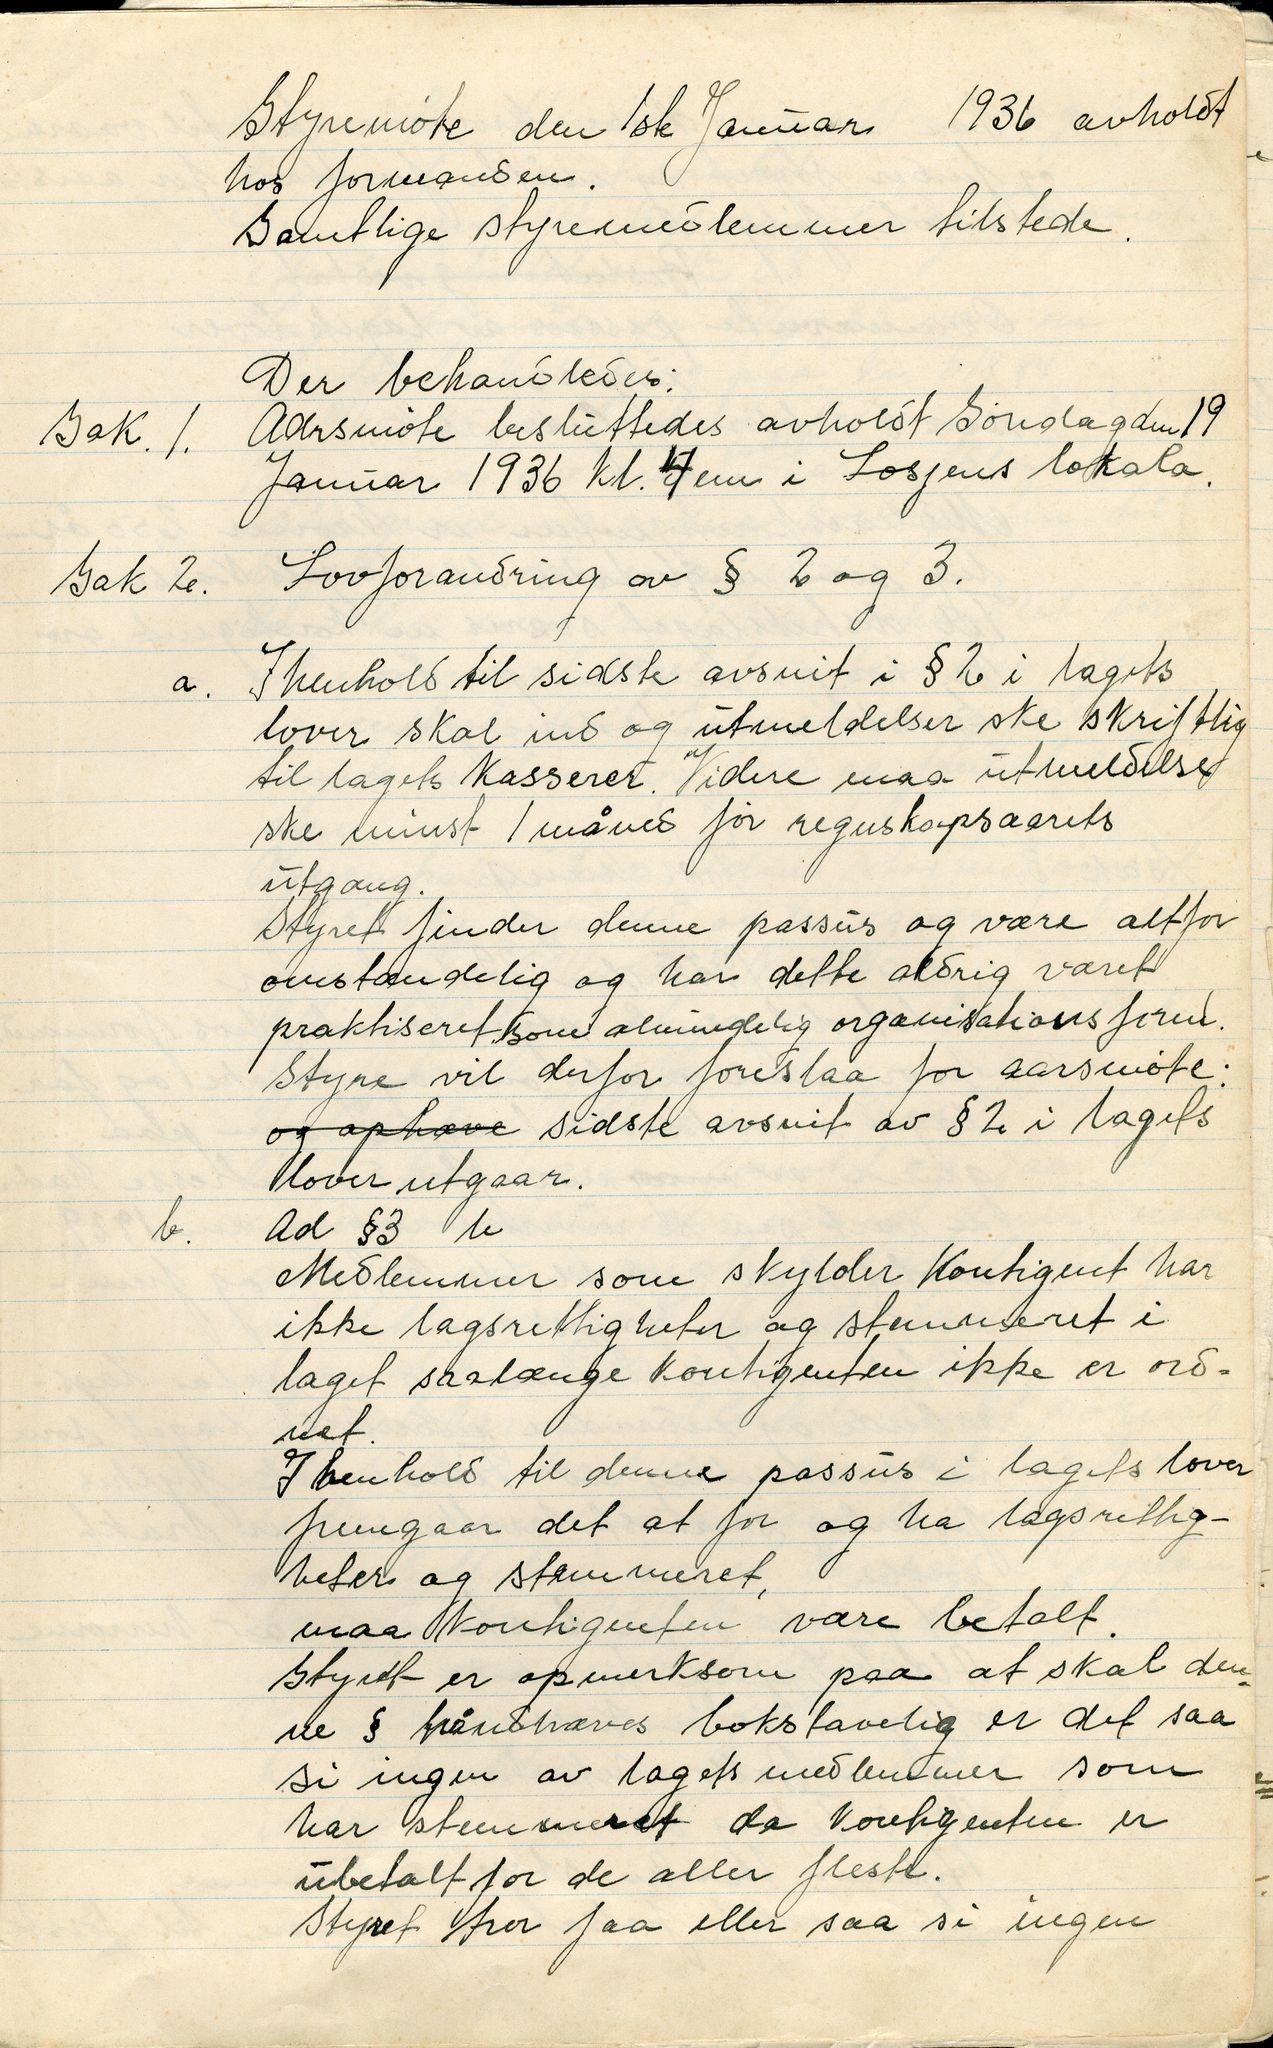 Styremöte den 1ste Januar 1936 avholdt
hos formanden.
Samtlige styremedlemmer tilstede.
Der behandledes:
Sak. 1. Adrsmöte besluttedes avholdt Söndag den 19
Januar 1936 kl. 4 em i Losjens lokala.
Sak 2. Lovforandring av § 2 og 3.
a. I henhold til sidste avsnit i § 2 i lagets
lover skal ind og utmeldelser ske skriftlig
til lagets Kasserer. Videre maa utmeldelse
ske minst 1 måned för regnskapsaarets
utgang.
Styret finder denne passus og være altfor
omstendelig og har dette aldrig været
praktiseret som almindelig organisationsform.
Styre vil derfor foreslaa for aarsmöte:
og ophæve sidste avsnit av § 2 i lagets
lover utgaar.
b. Ad §3 b
Medlemmer som skylder Kontigent har
ikke lagsrettigheter og stemmeret i
laget saalænge kontigenten ikke er ord-
net.
I henhold til denne passus i lagets lover
fremgaar det at for og ha lagsrettig-
heter og stemmeret,
maa kontigenten være betalt.
Styret er opmerksom paa at skal den-
ne § håndhæves bokstavelig er det saa
si ingen av lagets medlemmer som
har stemmeret da kontigenten er
ubetalt for de aller fleste.
Styret tror faa eller saa si ingen